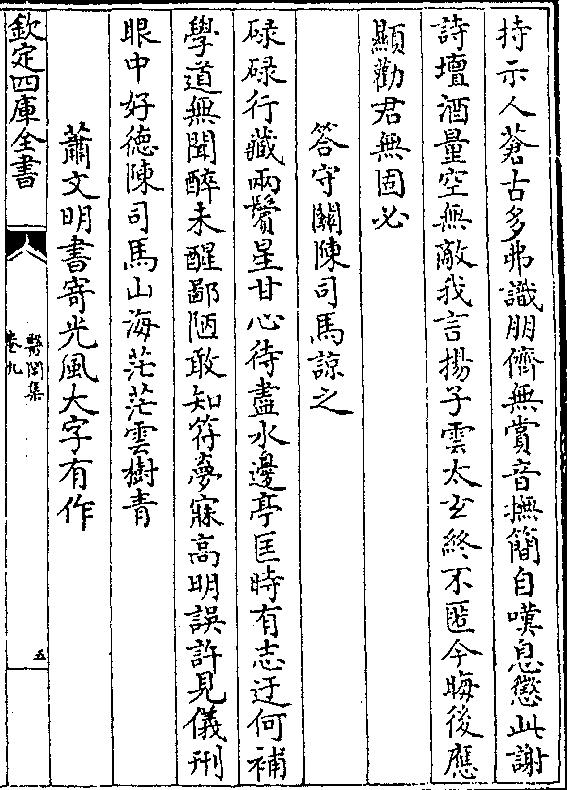 持示人蒼古多弗識朋儕無賞音撫簡自嘆息懲此謝
詩壇酒量空無敵我言揚子雲太玄終不匿今晦後應
顯勸君無固必
答守關陳司馬諒之
碌碌行藏兩鬢星甘心待盡水邊亭匡時有志迂何補
學道無聞醉未醒鄙陋敢知符夢寐高明誤許見儀刑
眼中好德陳司馬山海茫茫雲樹青
蕭文明書寄光風大字有作
欽定四庫全書
醫閭集
卷九
五